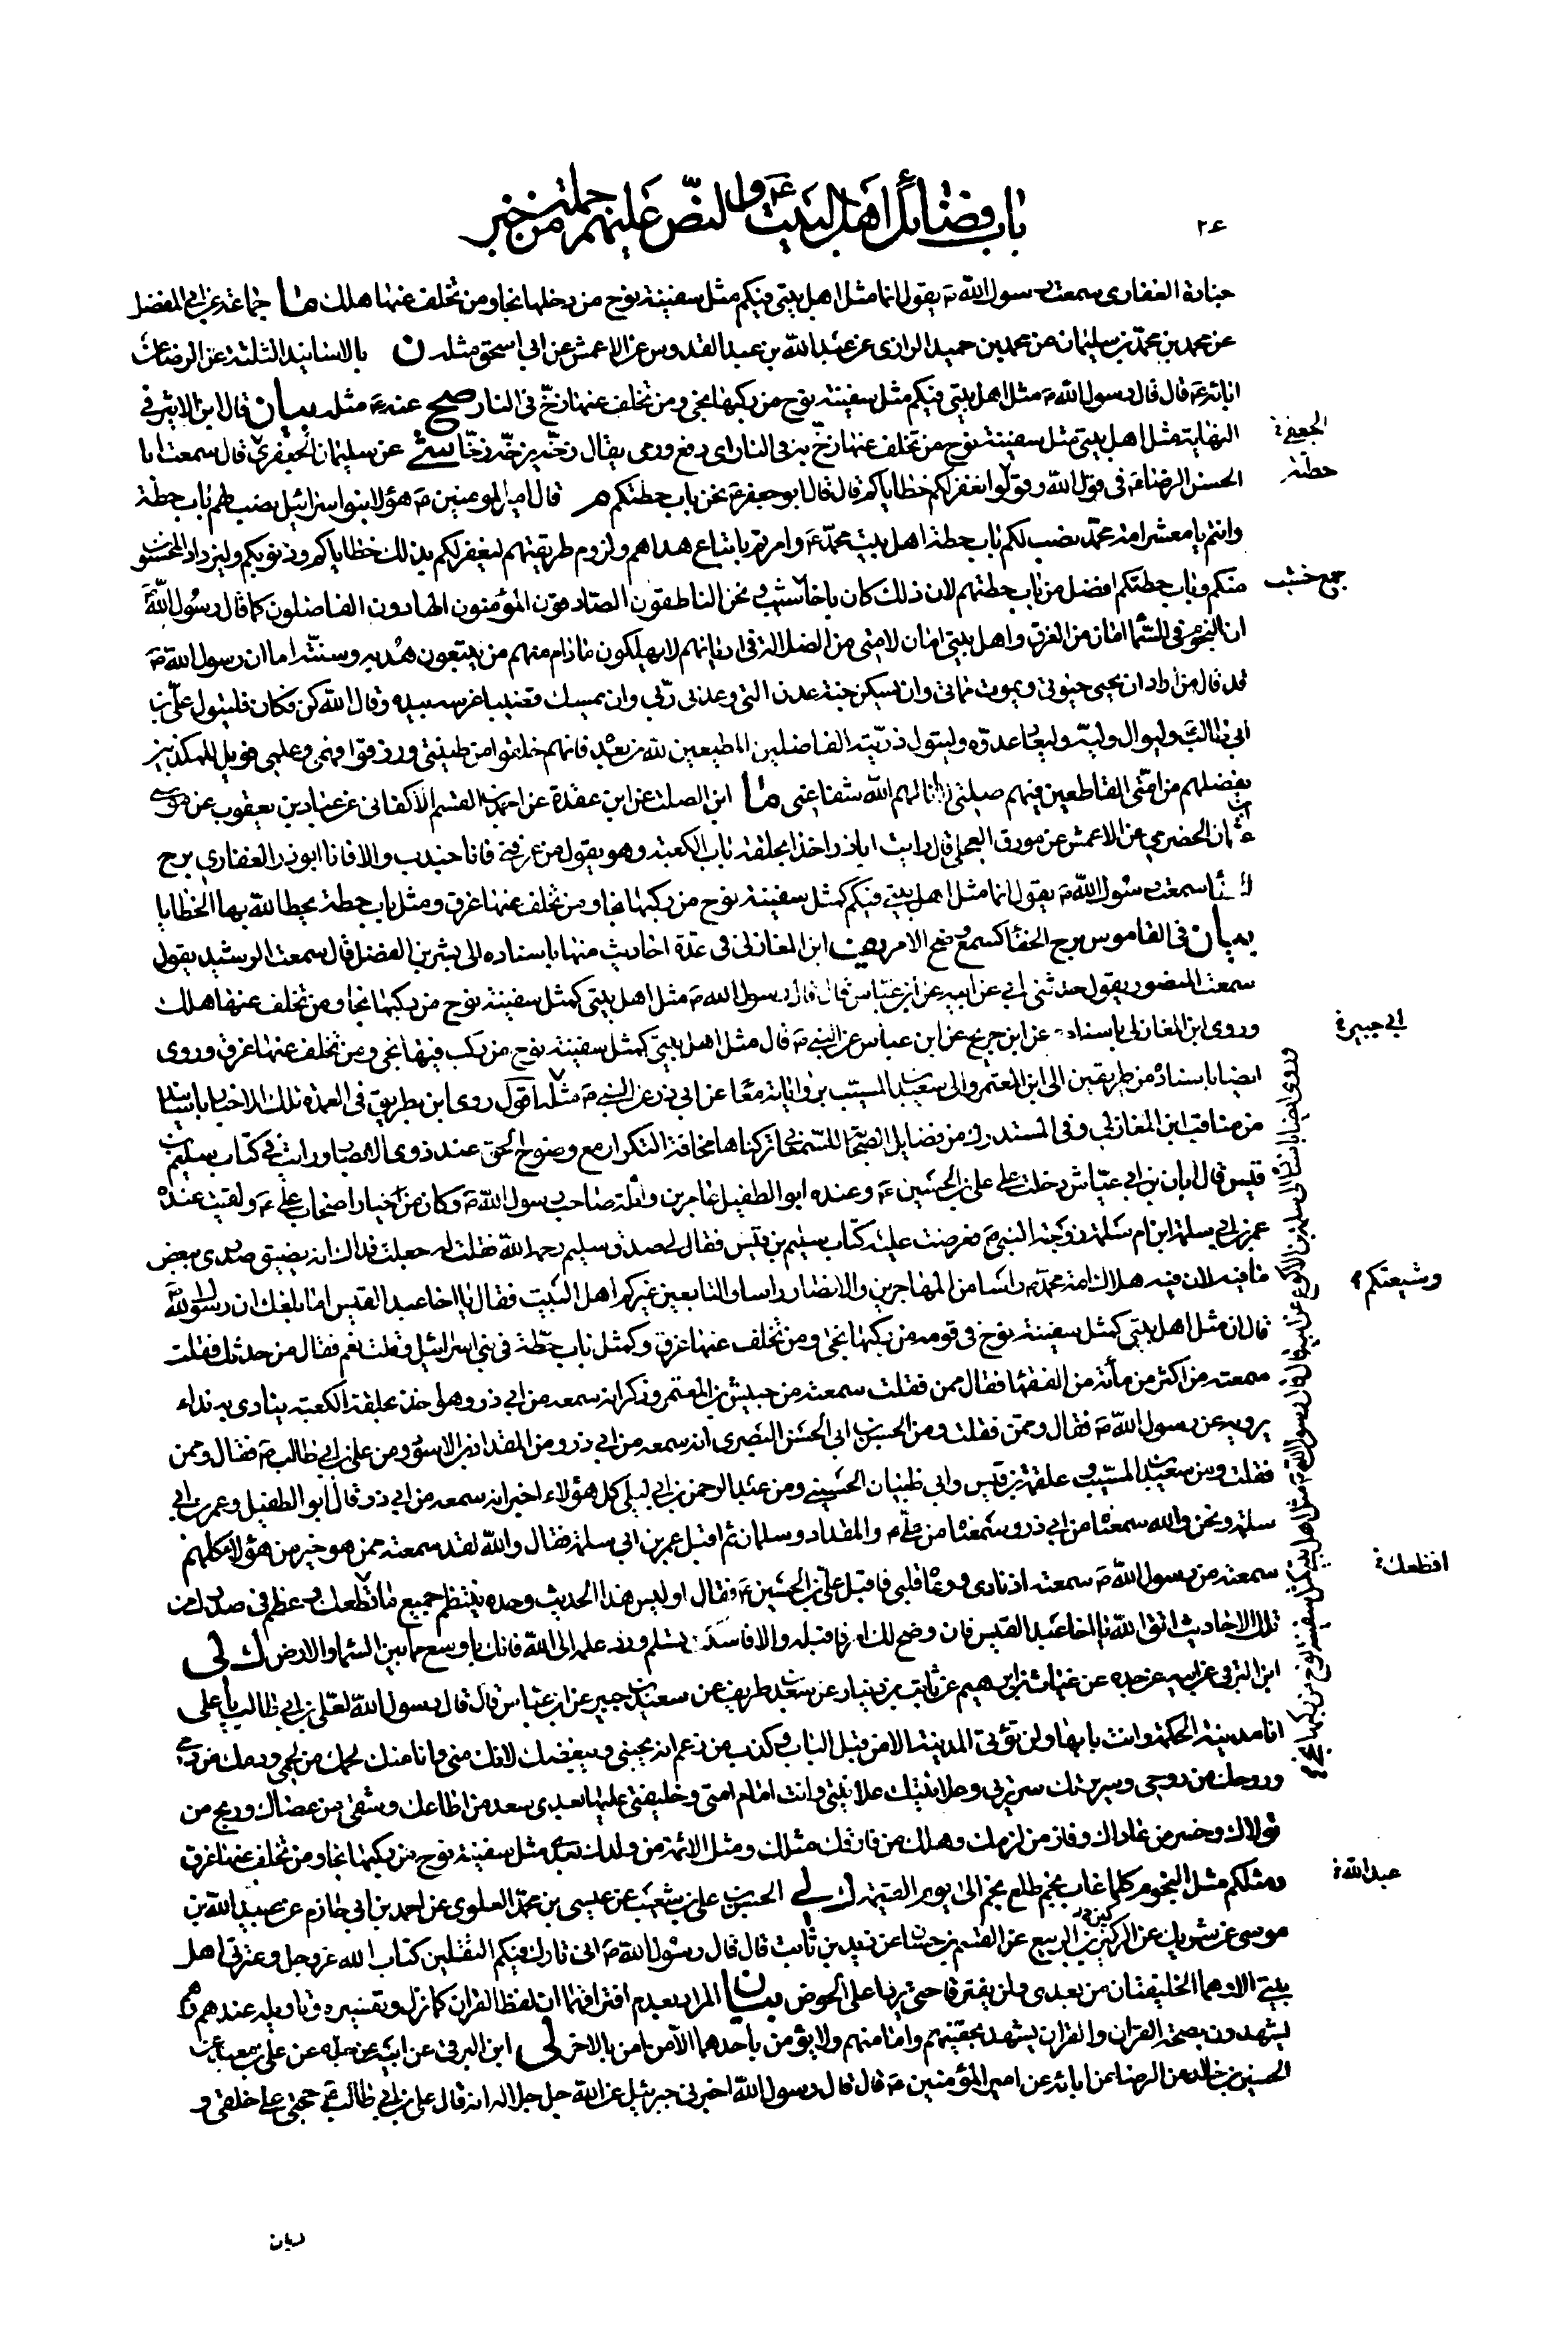 باب فضائل اهل البيت ع والنص عليهم جملة من خبر
٢٤
جنادة الغفارى سمعت رسول الله ص يقول انما مثل اهل بيتى فيكم مثل سفينة نوح من دخلها نجا ومن تخلف عنها هلك ما جماعة عن ابى المفضل
عن محمد بن محمد بن سليمان عن محمد بن حميد الرازى عن عبد الله بن عبد القدوس عن الاعمش عن ابى اسحق مثله ن بالاسانيد الثلثة عن الرضا عن
ابائه ع قال قال رسول الله ص مثل اهل بيتى فيكم مثل سفينة نوح من ركبها نجى ومن تخلف عنها زخ فى النار صح عنه ع مثله بيان قال ابن الاثير فى
النهاية مثل اهل بيتى مثل سفينة نوح من تخلف عنها زخ به فى النار اى دفع ورمى يقال زخه يزخه زخا شى عن سليمان الجعفرى قال سمعت ابا
الجعفى خ
الحسن الرضا ع فى قول الله وقولوا نغفر لكم خطاياكم قال قال ابو جعفر ع نحن باب حطتكم م قال امير المومنين ص هؤلا بنوا اسرائيل نصب لهم باب حطة
حطة
وانتم يا معشر امة محمد نصب لكم باب حطة اهل بيت محمد ع وامرتم باتباع هداهم ولزوم طريقتهم ليغفر لكم بذلك خطاياكم وذنوبكم وليزداد المحسنون
منكم وباب حطتكم افضل من باب حطتهم لان ذلك كان باخاشيب ونحن الناطقون الصادقون المؤمنون الهادون الفاضلون كما قال رسول الله ص
جمع خشب
ان النجوم فى السما امان من الغرق واهل بيتى امان لامتى من الضلالة فى اديانهم لا يهلكون ما دام منهم من يتبعون هديه وسنته اما ان رسول الله ص
قد قال من اراد ان يحيى حيوتى ويموت مماتى وان يسكن جنة عدن التى وعدنى ربى وان يمسك قضيبا غرسه بيده وقال الله كن فكان فليتول على بن
ابى طالب وليوال وليه وليعاد عدوه وليتول ذريته الفاضلين المطيعين لله من بعده فانهم خلقوا من طينتى ورزقوا فهمى وعلمى فويل للمكذبين
بفضلهم من امتى القاطعين فيهم صلتى لا انالهم الله شفاعتى ما ابن الصلت عن ابن عقدة عن احمد بن القسم الاكفانى عن عباد بن يعقوب عن موسى
بن عثمان الحضرمى عن الاعمش عن مورق العجلى قال رايت اباذر اخذا بحلقة باب الكعبة وهو يقول من عرفنى فانا جندب والا فانا ابو ذر الغفارى برح
الخفا سمعت رسول الله ص يقول انما مثل اهل بيتى فيكم كمثل سفينة نوح من ركبها نجا ومن تخلف عنها غرق ومثل باب حطة يحط الله بها الخطايا
بيان فى القاموس برح الخفا كسمع وضح الامر يف ابن المغازلى فى عدة احاديث منها باسناده الى بشر بن الفضل قال سمعت الرشيد يقول
سمعت المنصور يقول حدثنى ابى عن ابيه عن ابن عباس قال قال رسول الله ص مثل اهل بيتى كمثل سفينة نوح من ركبها نجا ومن تخلف عنها هلك
وروى ابن المغازلى باسناده عن ابن جريح عن ابن عباس عن النبى ص قال مثل اهل بيتى كمثل سفينة نوح من ركب فيها نجى ومن تخلف عنها غرق وروى
ابى جبير خ
ايضا باسناده من طريقين الى ابن المعتمر والى سعيد بن المسيب برواياته معا عن ابى ذر عن النبى ص مثله اقول روى ابن بطريق فى العمدة تلك الاخبار باسانيدها
وروى ايضا باسناده الى سلمة بن الاكوع عن ابيه قال قال رسول الله ص مثل اهل بيتى مثل سفينة نوح من ركبها نجا
من مناقب ابن المغازلى وفى المستدرك من فضايل الصحابة للسمعانى تركناها مخافة التكرار مع وضوح الحق عند ذوى الابصار ورايت فى كتاب سليم بن
قيس قال ابان بن ابى عياش دخلت على على بن الحسين ع وعنده ابو الطفيل عامر بن واثلة صاحب رسول الله ص وكان من خيار اصحاب على ع ولقيت عنده
عمر بن ابى سلمة ابن ام سلمة زوجة النبى ص فعرضت عليه كتاب سليم بن قيس فقال لى صدق سليم رحمه الله فقلت له جعلت فداك انه يضيق صدرى ببعض
ما فيه لان فيه هلاك امة محمد ص راسا من المهاجرين والانصار راسا والتابعين غيركم اهل البيت فقال يا اخا عبد القيس اما بلغك ان رسول الله ص
وشيعتكم خ
قال ان مثل اهل بيتى كمثل سفينة نوح فى قومه من ركبها نجى ومن تخلف عنها غرق وكمثل باب حطة فى بنى اسرائيل فقلت نعم فقال من حدثك فقلت
سمعته من اكثر من مأة من الفقها فقال ممن فقلت سمعته من حبيش بن المعتمر وذكر انه سمعه من ابى ذر وهو اخذ بحلقة الكعبة ينادى به نداء
يرويه عن رسول الله ص فقال وممن فقلت ومن الحسن بن ابى الحسن البصرى انه سمعه من ابى ذر ومن المقداد بن الاسود ومن على بن ابى طالب ص فقال وممن
فقلت ومن سعيد بن المسيب وعلقمة بن قيس وابى ظبيان الحسينى ومن عبد الرحمن بن ابى ليلى كل هؤلاء اخبر انه سمعه من ابى ذر قال ابو الطفيل وعمر بن ابى
سلمة ونحن والله سمعنا من ابى ذر وسمعنا من على ع والمقداد وسلمان ثم اقبل عمر بن ابى سلمة فقال والله لقد سمعته ممن هو خير من هؤلا كلهم
سمعته من رسول الله ص سمعته اذناى ووعاه قلبى فاقبل على بن الحسين ع فقال اوليس هذا الحديث وحده ينتظم جميع ما اقطعك وعظم فى صدرك من
افظعك خ
تلك الاحاديث اتق الله يا اخا عبد القيس فان وضح لك امر فاقبله والا فاسكت تسلم ورد علمه الى الله فانك باوسع مما بين السما والارض ك لى
ابن البرقى عن ابيه عن جده عن غياث بن ابرهيم عن ثابت بن دينار عن سعد بن طريف عن سعيد بن جبير عن ابن عباس قال قال رسول الله لعلى بن ابى طالب يا على
انا مدينة الحكمة وانت بابها ولن تؤتى المدينة الا من قبل الباب وكذب من زعم انه يحبنى ويبغضك لانك منى وانا منك لحمك من لحمى ودمك من دمى
وروحك من روحى وسريرتك سريرتى وعلانيتك علانيتى وانت امام امتى وخليفتى عليها بعدى سعد من اطاعك وشقى من عصاك وربح من
تولاك وخسر من عاداك وفاز من لزمك وهلك من فارقك مثلك ومثل الائمة من ولدك بعدى مثل سفينة نوح من ركبها نجا ومن تخلف عنها غرق
ومثلكم مثل النجوم كلما غاب نجم طلع نجم الى يوم القيمة ك لى الحسن بن على بن شعيب عن عيسى بن محمد العلوى عن احمد بن ابى حازم عن عبيد الله بن
عبد الله خ
موسى عن شريك عن الركين بن الربيع عن القسم بن حسان عن زيد بن ثابت قال قال رسول الله ص انى تارك فيكم الثقلين كتاب الله عز وجل وعترتى اهل
بيتى الا وهما الخليفتان من بعدى ولن يفترقا حتى يردا على الحوض بيان المراد بعدم افتراقهما ان لفظ القران كما نزل وتفسيره وتاويله عندهم وهم
يشهدون بصحة القران والقران يشهد بحقيتهم وامامتهم ولا يؤمن باحدهما الا من امن بالاخر لى ابن البرقى عن ابيه عن جده عن على بن معبد عن
الحسين بن خالد عن الرضا عن ابائه عن امير المؤمنين ع قال قال رسول الله اخبرنى جبرئيل عن الله جل جلاله انه قال على بن ابى طالب ع حجتى على خلقى و
ديان